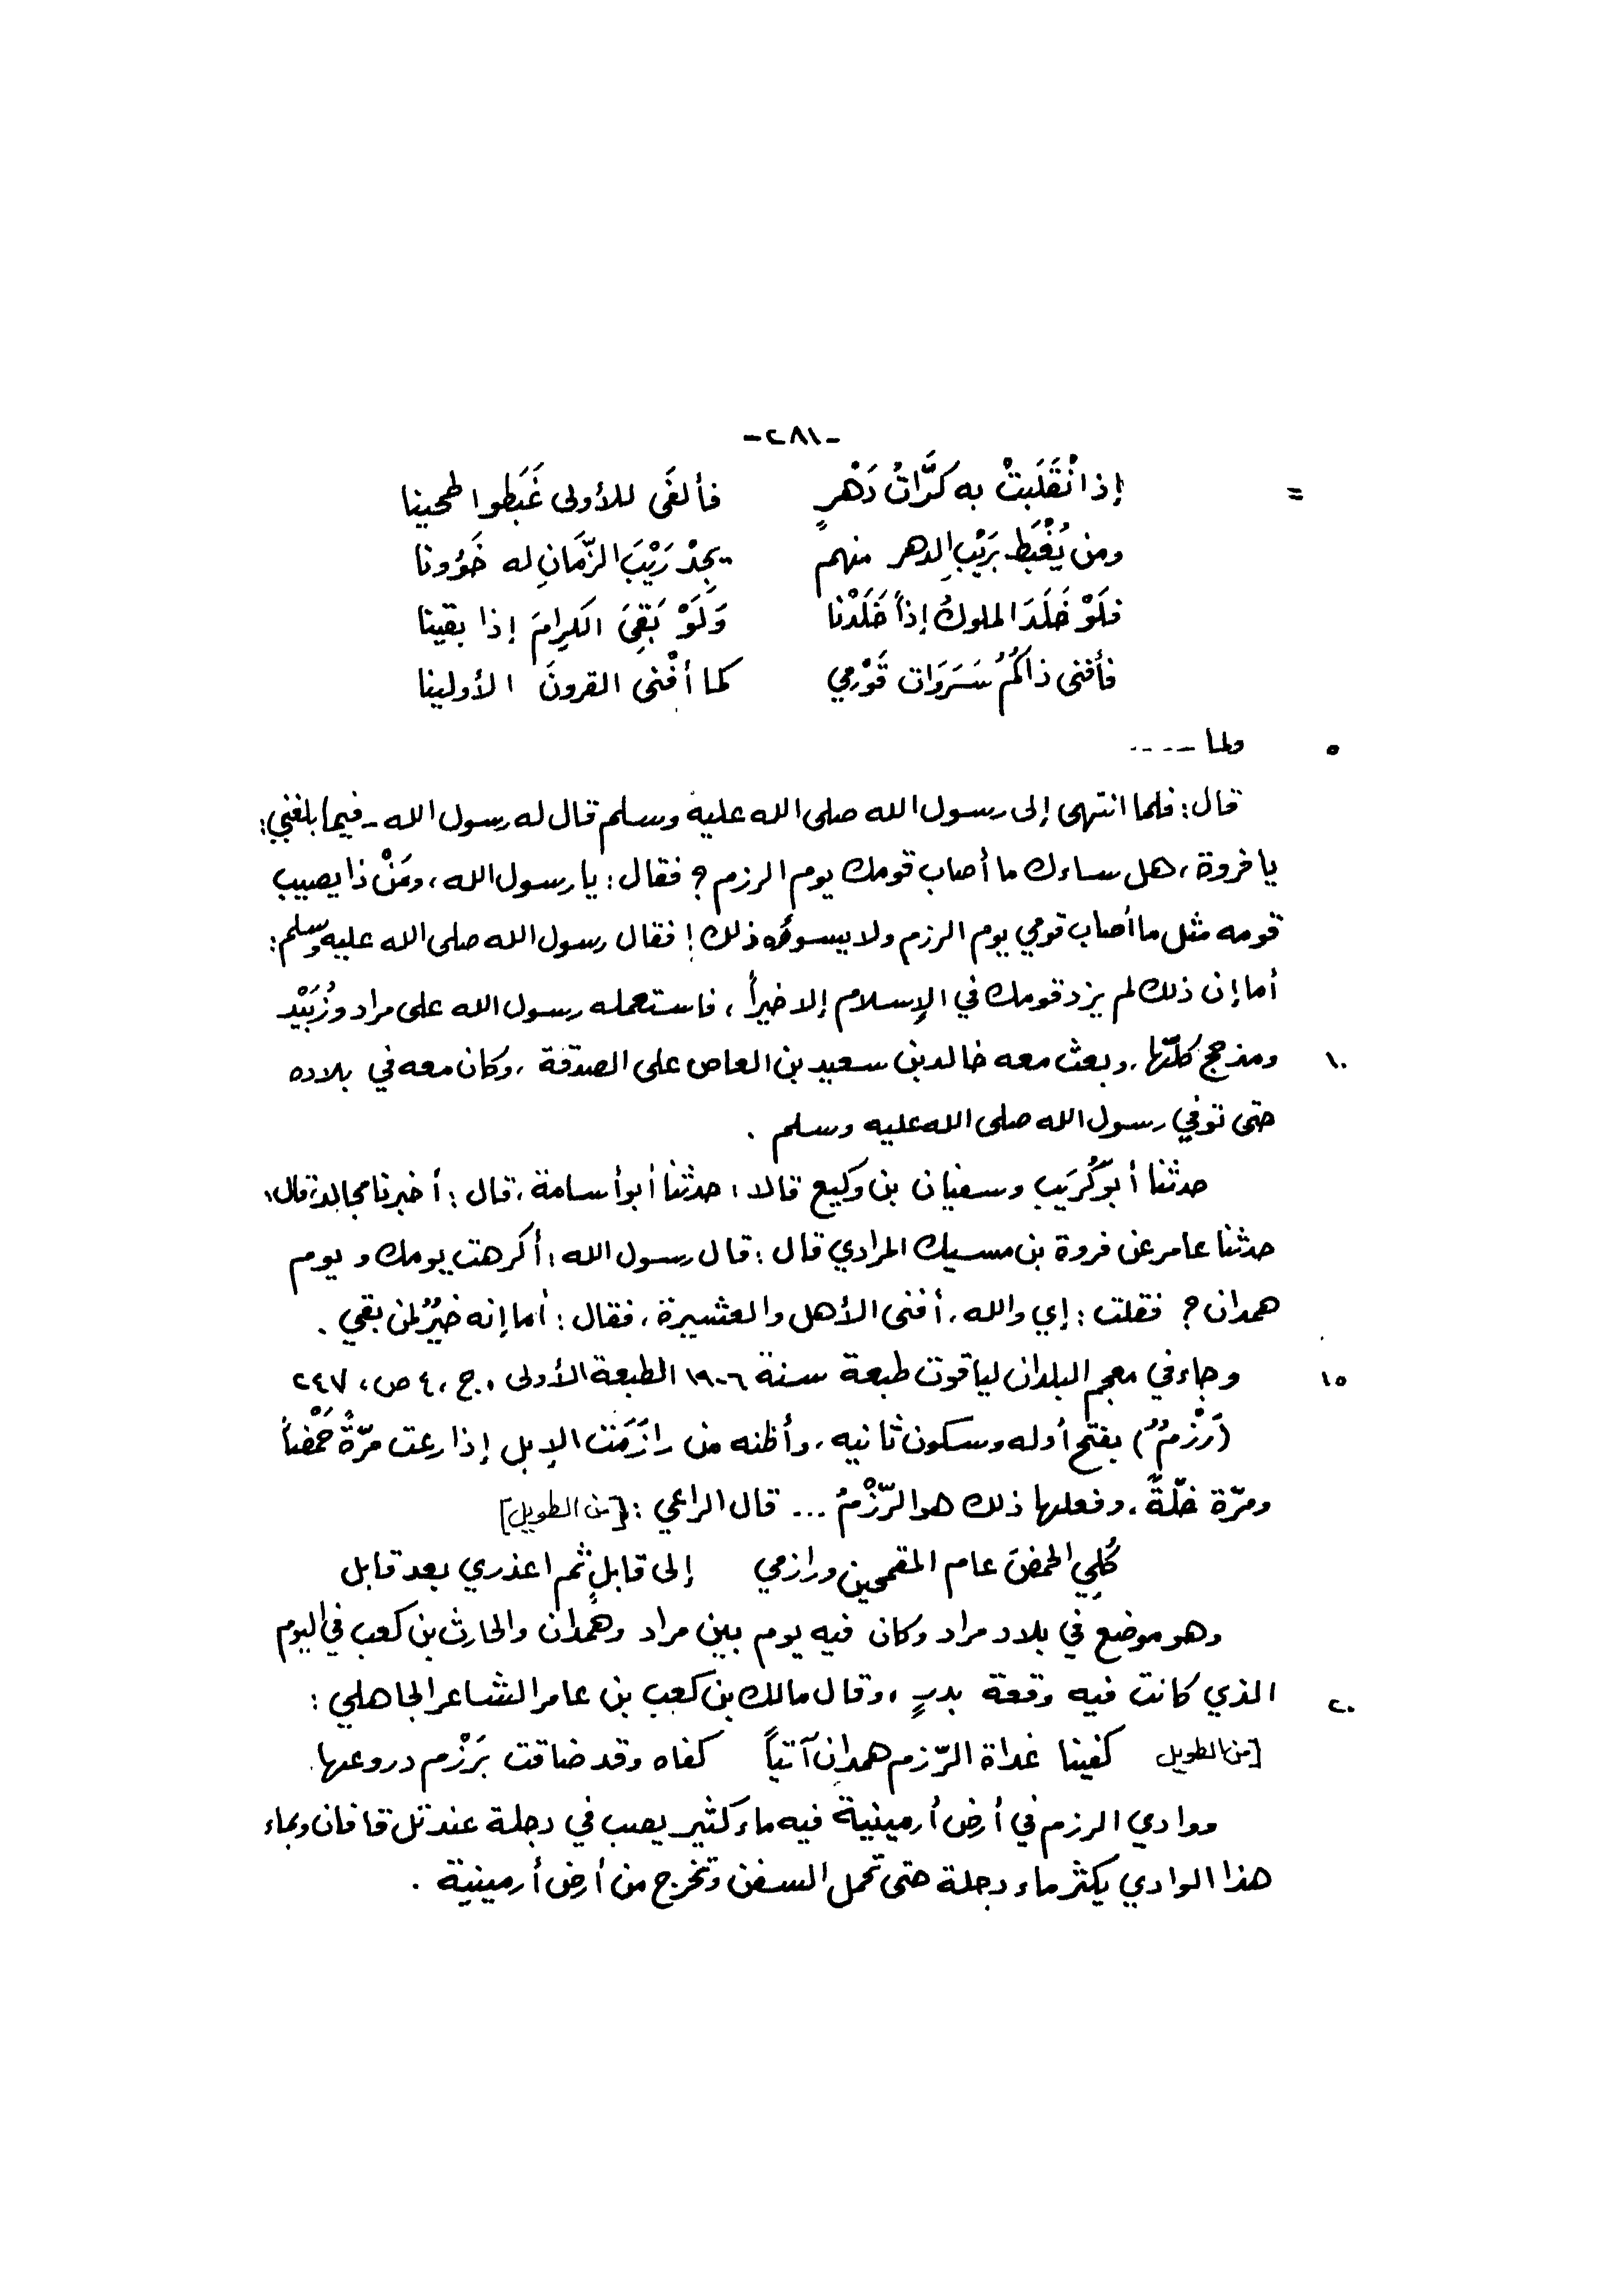 -٢٨١-
= إذا نْقَلَبتْ به كَرَّاتُ دَهْرٍ فألفَى للأولى غَبَطوا طحينا
ومن يُغْبَط بَرَيْبِ الدهر منهم يَجِدْ رَيْبَ الزَّمَانِ له خَؤونا
فلَوْ خَلَدَ الملوكُ إذاً خَلَدْنا وَلَوْ بَقِيَ الكرامَ إذا بقينا
فأفنى ذاكُمُ سَرَوَات قَوْمِي كما أفْنى القرونَ الأولينا
٥ ولما ----
قال: فلما انتهى إلى رسول الله صلى الله عليه وسلم قال له رسول الله - فيما بلغني:
يا فروة، هل ساءك ما أصاب قومك يوم الرزم؟ فقال: يا رسول الله، ومَنْ ذا يصيب
قومه مثل ما أصاب قومي يوم الرزم ولا يسوؤه ذلك! فقال رسول الله صلى الله عليه وسلم:
أما إن ذلك لم يزد قومك في الإسلام إلا خيراً، فاستعمله رسول الله على مراد وزُبَيْد
١٠ ومذحج كلّها، وبعث معه خالد بن سعيد بن العاص على الصدقة، وكان معه في بلاده
حتى توفي رسول الله صلى الله عليه وسلم .
حدثنا أبو كُرَيب وسفيان بن وكيع قالا: حدثنا أبو أسامة، قال: أخبرنا مجالد، قال:
حدثنا عامر عن فروة بن مسيك المرادي قال: قال رسول الله: أكرهت يومك ويوم
همدان؟ فقلت: إي والله، أفنى الأهل والعشيرة، فقال: أما إنه خيرٌ لمن بقي .
١٥ وجاء في معجم البلدان لياقوت طبعة سنة ١٩٠٦ الطبعة الأولى، ج، ٤ ص، ٢٤٧
(رَزْمٌ) بفتح أوله وسكون ثانيه، وأظنه من رازَمَت الإبل إذا رعت مرّةً حَمْضاً
ومرّة خلّةً، وفعلها ذلك هو الرّزْمُ ... قال الراعي: [من الطويل]
كُلِي الحمضَ عام المقمحين ورازمي إلى قابلٍ ثم اعذري بعد قابل
وهو موضع في بلاد مراد وكان فيه يوم بين مراد وهمدان والحارث بن كعب في اليوم
٢٠ الذي كانت فيه وقعة بدرٍ، وقال مالك بن كعب بن عامر الشاعر الجاهلي:
[من الطويل كفينا غداة الرّزم همدان آتياً كفاه وقد ضاقت بَرَزْم دروعها.
ووادي الرزم في أرض أرمينية فيه ماء كثير يصب في دجلة عند تل قافان وبماء
هذا الوادي يكثر ماء دجلة حتى تحمل السفن وتخرج من أرض أرمينية .